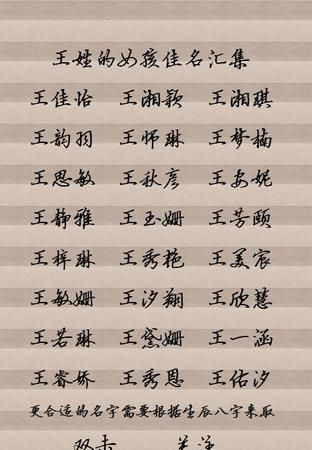 王姓的女孩佳名汇集
王佳怡 王湘颖 王湘琪
王韵羽 王师琳 王梦楠
王思敏 王秋彦 王安妮
王静雅 王玉姗 王芳颐
王梓琳 王秀艳 王美宸
王敏姗 王汐翔 王欣慧
王若琳 王黛姗 王一涵
王睿娇 王秀恩 王佑汐
更合适的名字需要根据生辰八字来取
双击 关注